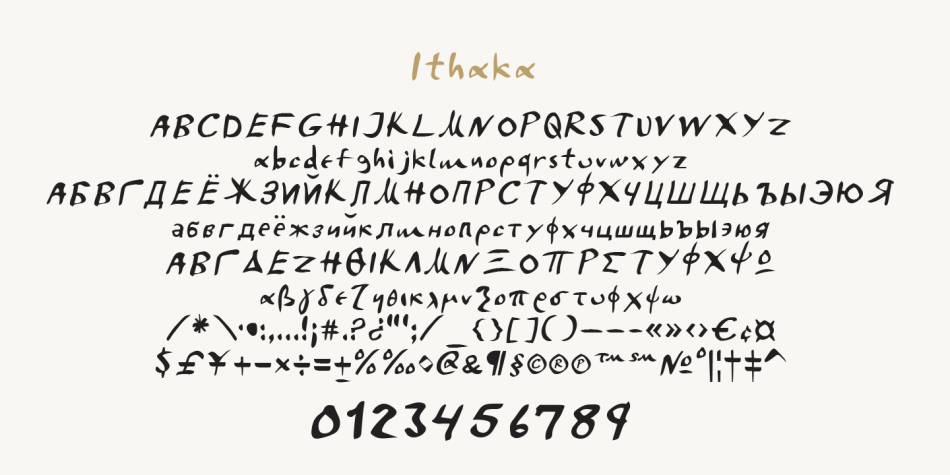 Ithaka
ABCDEFGHIJKLMNOPQRSTUVWXYZ
abcdefghijklmnopqrstuvwxyz
АБВГДЕЁЖЗИЙКЛМНОПРСТУФХЧЦШЩЬЪЫЭЮЯ
абвгдеёжзийклмнопрстуфхчцшщьъыэюя
ΑΒΓΔΕΖΗΘΙΚΛΜΝΞΟΠΡΣΤΥΦΧΨΩ
αβγδεζηθικλμνξοπρστυφχψω
/*\·•:,...!¡#.?¿"';/_{}[]()—–--«»‹›€¢¤
$£¥+−×÷=±%‰◊@&¶§©®℗™℠№º|¦†‡^
0123456789